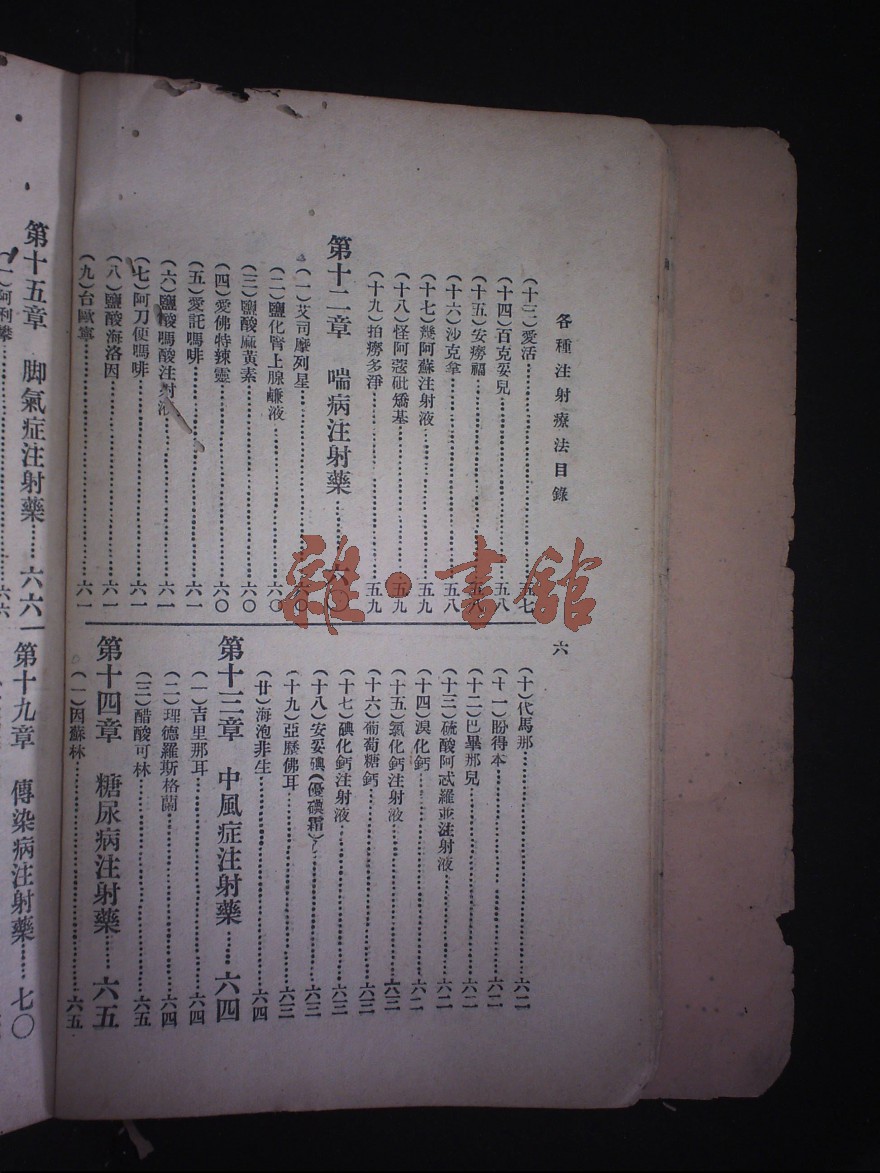 各種注射療法目錄
六
(十三)愛活………五七
(十四)百克妥兒………五八
(十五)安癆福………五八
(十六)沙克拿………五八
(十七)幾阿蘇注射液………五九
(十八)怪阿蔻砒矯基………五九
(十九)拍癆多淨………五九
第十二章 喘病注射藥………六〇
(一)艾司摩列星………六〇
(二)鹽化腎上腺鹻液………六〇
(三)鹽酸麻黃素………六〇
(四)愛佛特辣靈………六〇
(五)愛託嗎啡………六一
(六)鹽酸嗎酸注射液………六一
(七)阿刀便嗎啡………六一
(八)鹽酸海洛因………六一
(九)台歐寧………六一
(十)代馬那………六二
(十一)盼得本………六二
(十二)巴畢那兒………六二
(十三)硫酸阿忒羅並注射液………六二
(十四)溴化鈣………六二
(十五)氯化鈣注射液………六三
(十六)葡萄糖鈣………六三
(十七)碘化鈣注射液………六三
(十八)安妥碘(優碘霜)………六三
(十九)亞歷佛耳………六三
(廿)海泡非生………六四
第十三章 中風症注射藥……六四
(一)吉里那耳………六四
(二)理德羅斯格蘭………六四
(三)醋酸可林………六五
第十四章 糖尿病注射藥……六五
(一)因蘇林………六五
第十五章 脚氣症注射藥……六六
(一)阿利攀………六六
第十九章 傳染病注射藥……七〇
雜·書館